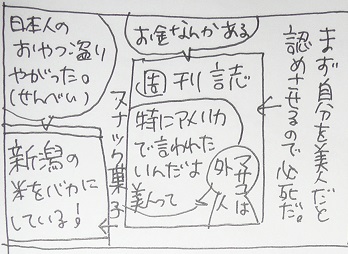 まず自分を美人だと
認めさせるので必死だ。
お金なんかある
週刊 読
特にアメリカ
で言われた
いんだよ
美人って
マサ子は
外人
スナック菓子
日本人の
おやつ盗り
やがった。
(せんべい)
新潟の
米をバカに
している!